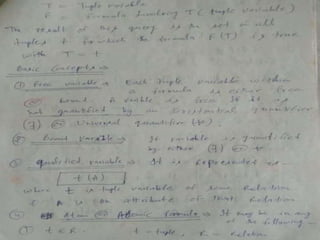 T = Tuple variable
F = Formula involving T (Tuple variable)
The result of this query is the set of all
tuples t for which the formula F(T) is true
with T = t
Basic Concepts →
① Free variable → Each tuple variable within
a formula is either free
or bound. A variable is free if it is
not quantified by an Existential quantifier
(∃) or Universal quantifier (∀).
② Bound Variable → If variable is quantified
by either (∃) or
③ Qualified variable → It is Represented as -
t(A)
where t is tuple variable of some Relation
& A is an attribute of that Relation
④ Atom or Atomic formula → It may be in any
of the following -
① t ∈ R. t - tuple, R - Relation